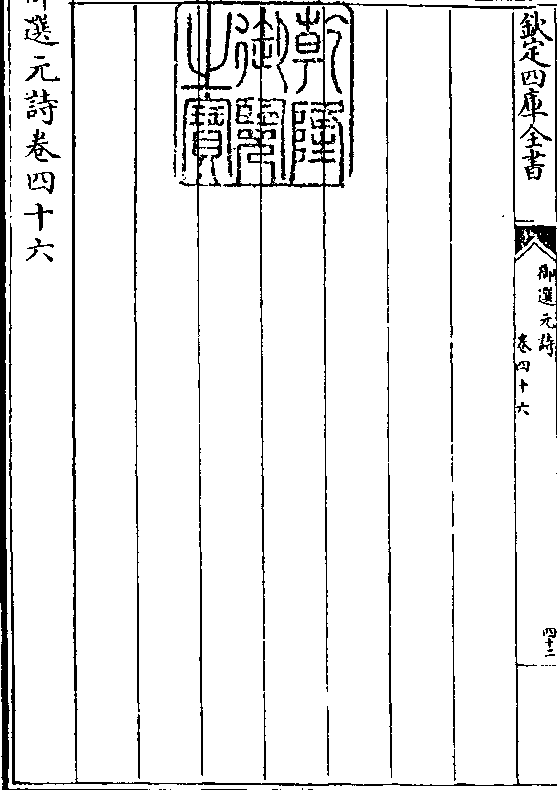 欽定四庫全書
御選元詩
卷四十六
四十二
乾隆
御覽
之寶
御選元詩卷四十六